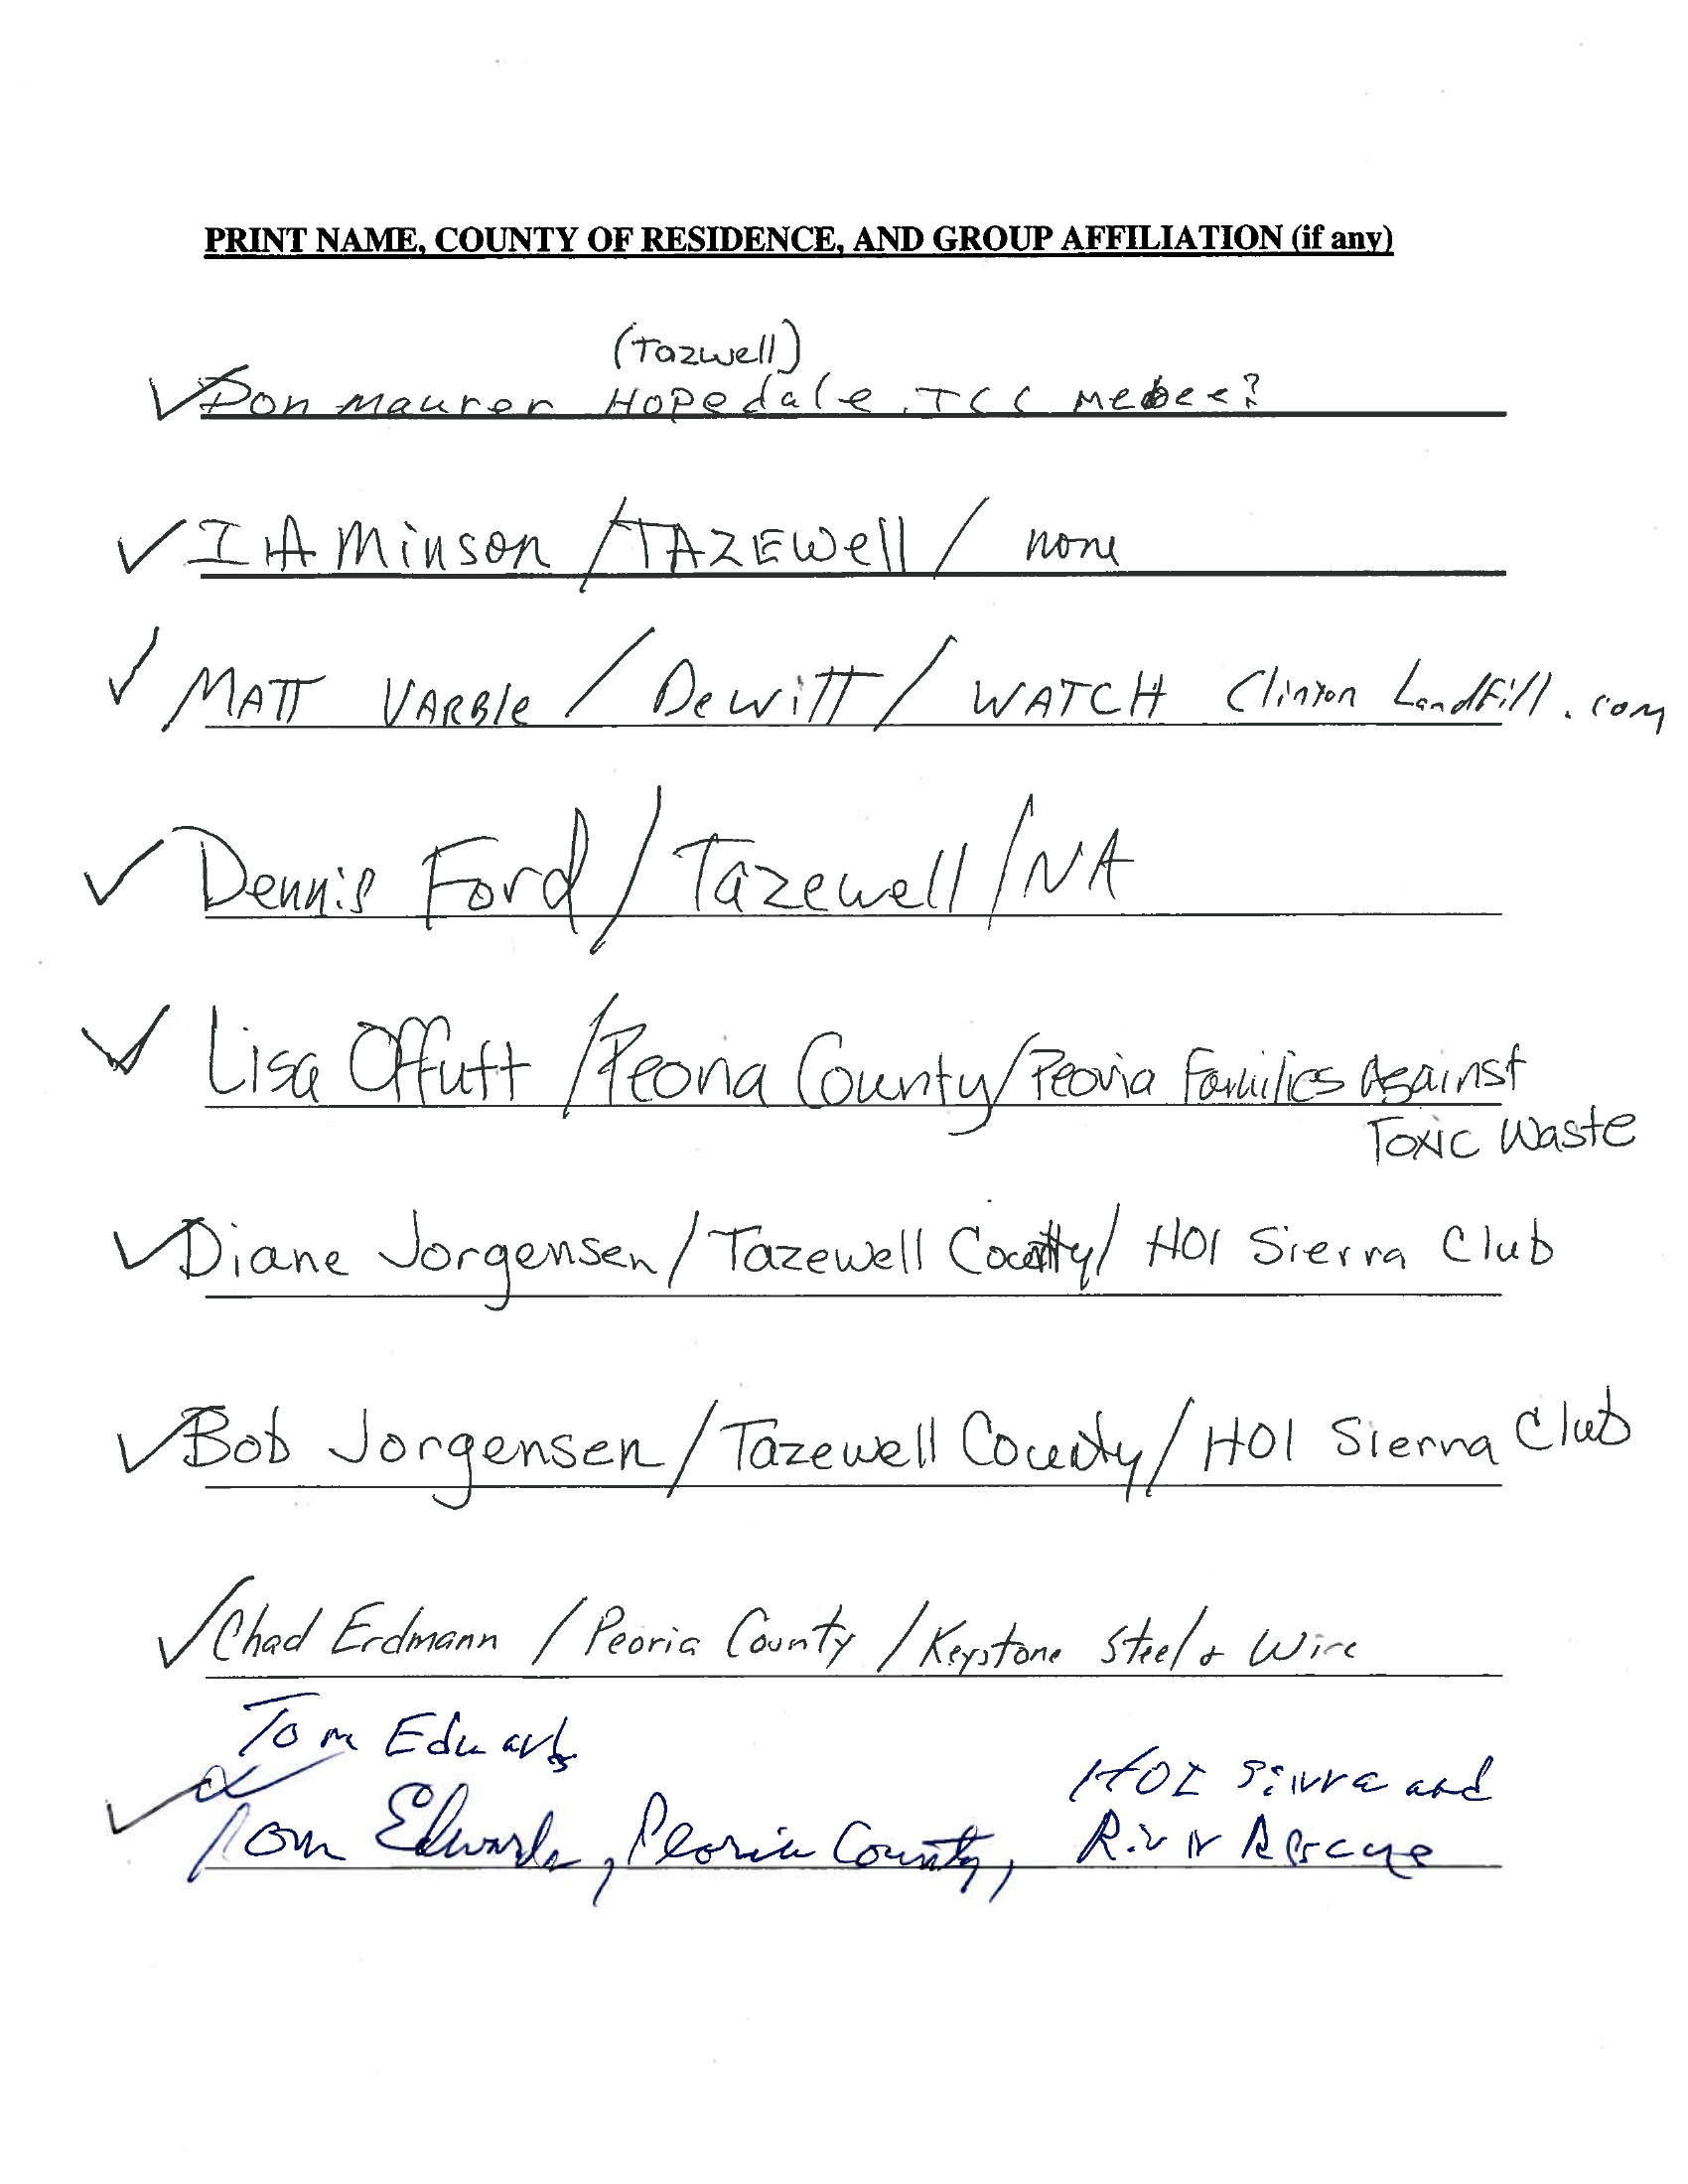 PRINT NAME, COUNTY OF RESIDENCE, AND GROUP AFFILIATION (if any)
(Tazwell)
Don Maurer Hopedale. TCC
Minson / TAZEWell / none
MATT VARBle / DeWiTT / WATCH Clinton LandFill.com
Dennis Ford / Tazewell / NA
Lisa Offutt / Peoria County / Peoria Families Against
Toxic Waste
Diane Jorgensen / Tazewell County / HOI Sierra Club
Bob Jorgensen / Tazewell County / HOI Sierra Club
Chad Erdmann / Peoria County / Keystone Steel & Wire
Tom Edwards
HOI Sierra and
Tom Edwards, Peoria County, River Rescue